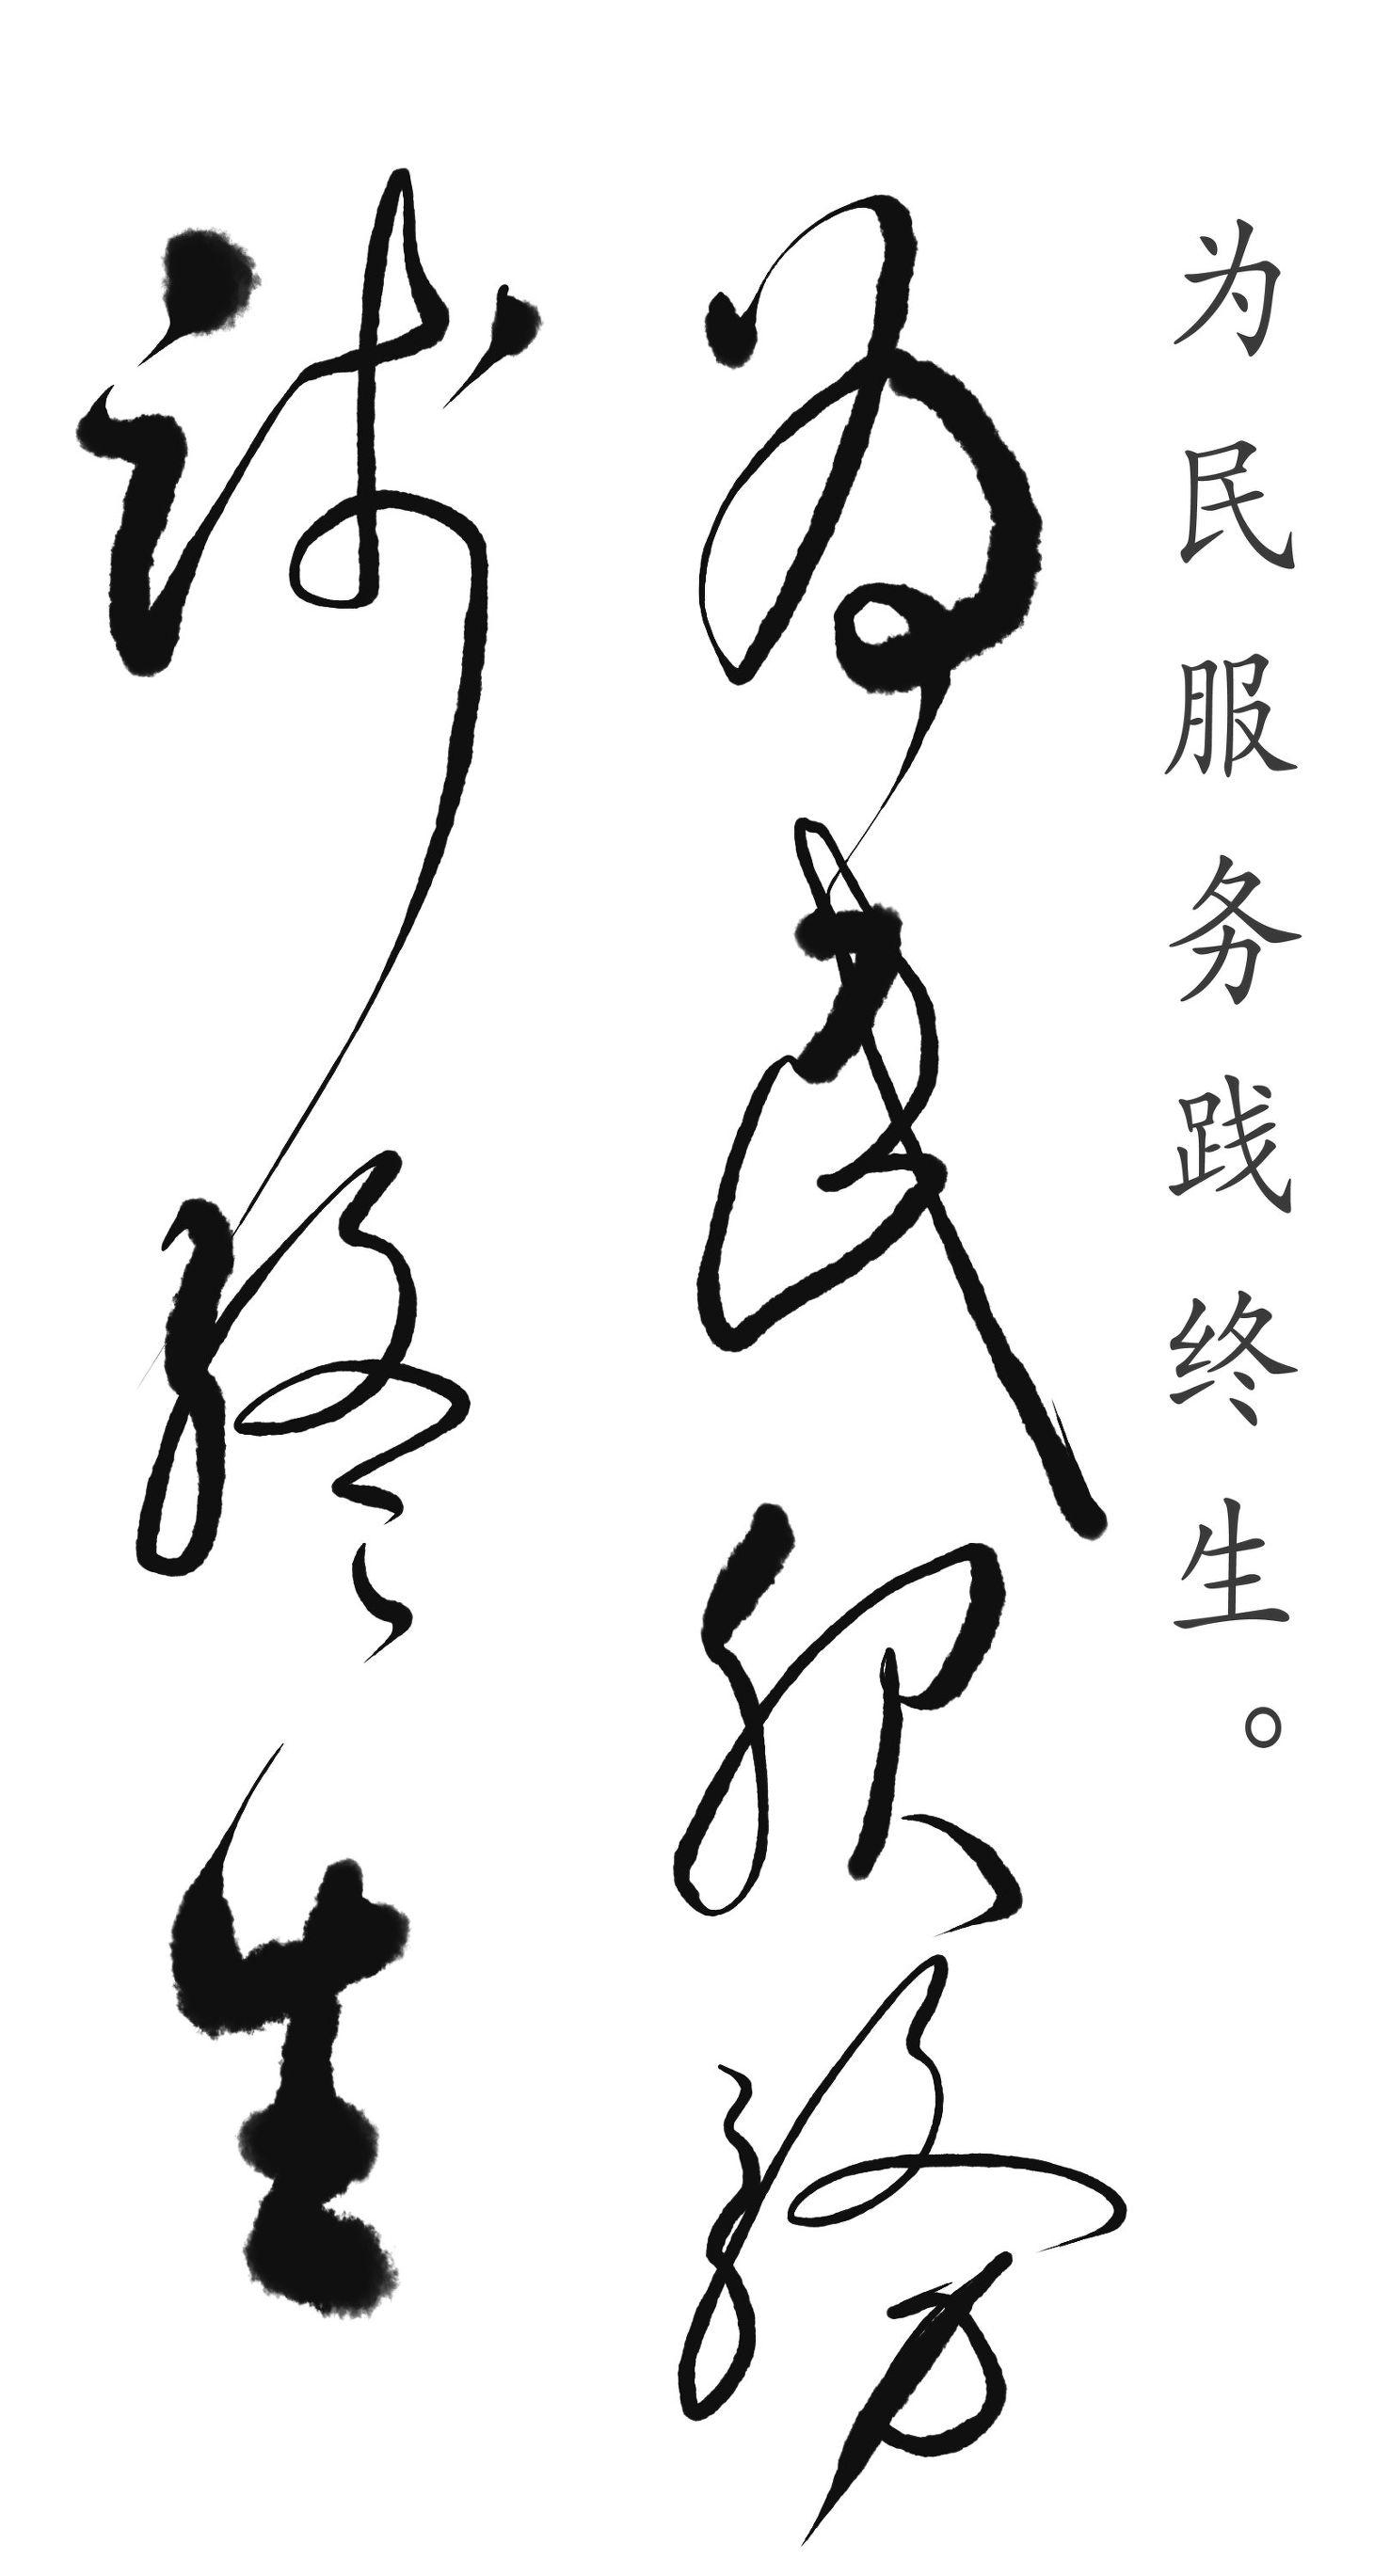 为民服务践终生。
为民服务
践终生